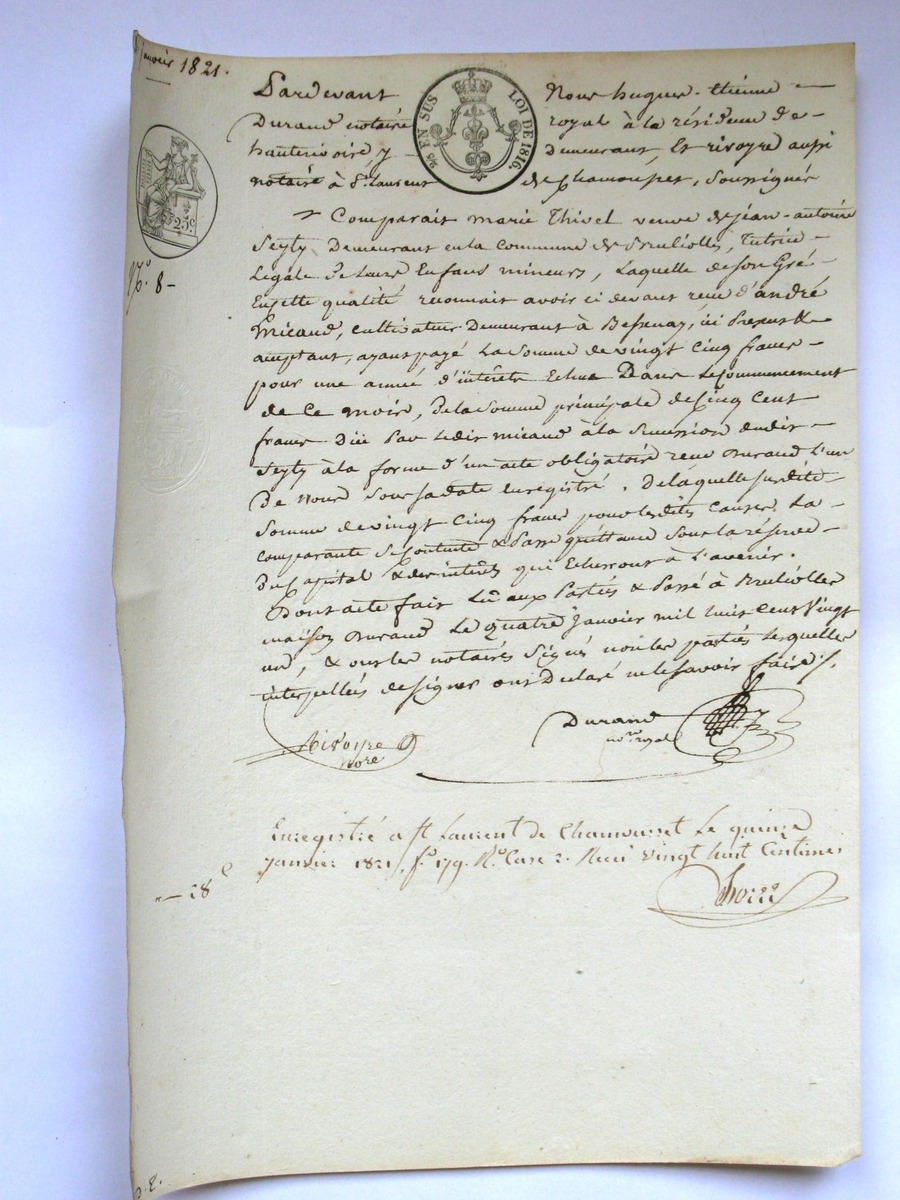 Janvier 1821.
Pardevant Nous hugues-Etienne
Durand notaire royal à la résidence de
hauterivoire, y demeurant, Et rivoyre aussi
notaire à St Laurent de Chamousset, soussignés
EN SUS LOI DE 1816.
25 c.
Comparait marie Thivel veuve de jean-antoine
Seyty Demeurant en la Commune de Brulliolles, tutrice
Legale De Leurs Enfans mineurs, Laquelle de son Gré
En cette qualité reconnait avoir ci devant reçu d'andré
No. 8
Micaud, cultivateur Demeurant à Bessenay, ici Present &
acceptant, ayant payé La Somme de vingt Cinq francs
pour une année d'intérêts Echue Dans Le Commencement
de Ce mois, De La Somme principale de Cinq Cent
francs Dûe Par Ledit micaud à la Succession dudit
Seyty à la forme d'un acte obligatoire reçu Durand L'un
De nous Sous sa date Enregistré. De laquelle susdite
Somme de vingt Cinq francs pour lesdites Causes La
comparante Se Contente & Passe quittance Sous la réserve
Du Capital & des intérêts qui Echerront à L'avenir.
Dont acte fait Lû aux Parties & Passé à Brulliolles
maison Durand Le quatre Janvier mil huit Cent Vingt
un, & ont les notaires Signés non les parties lesquelles
interpellées de signer ont Déclaré ne le savoir faire /.
Rivoyre
nore
Durand
nore royal
Enregistré a St Laurent de Chamousset Le quinze
Janvier 1821, fo. 179 Ro. Case 2. Reçu vingt huit Centimes
28 c